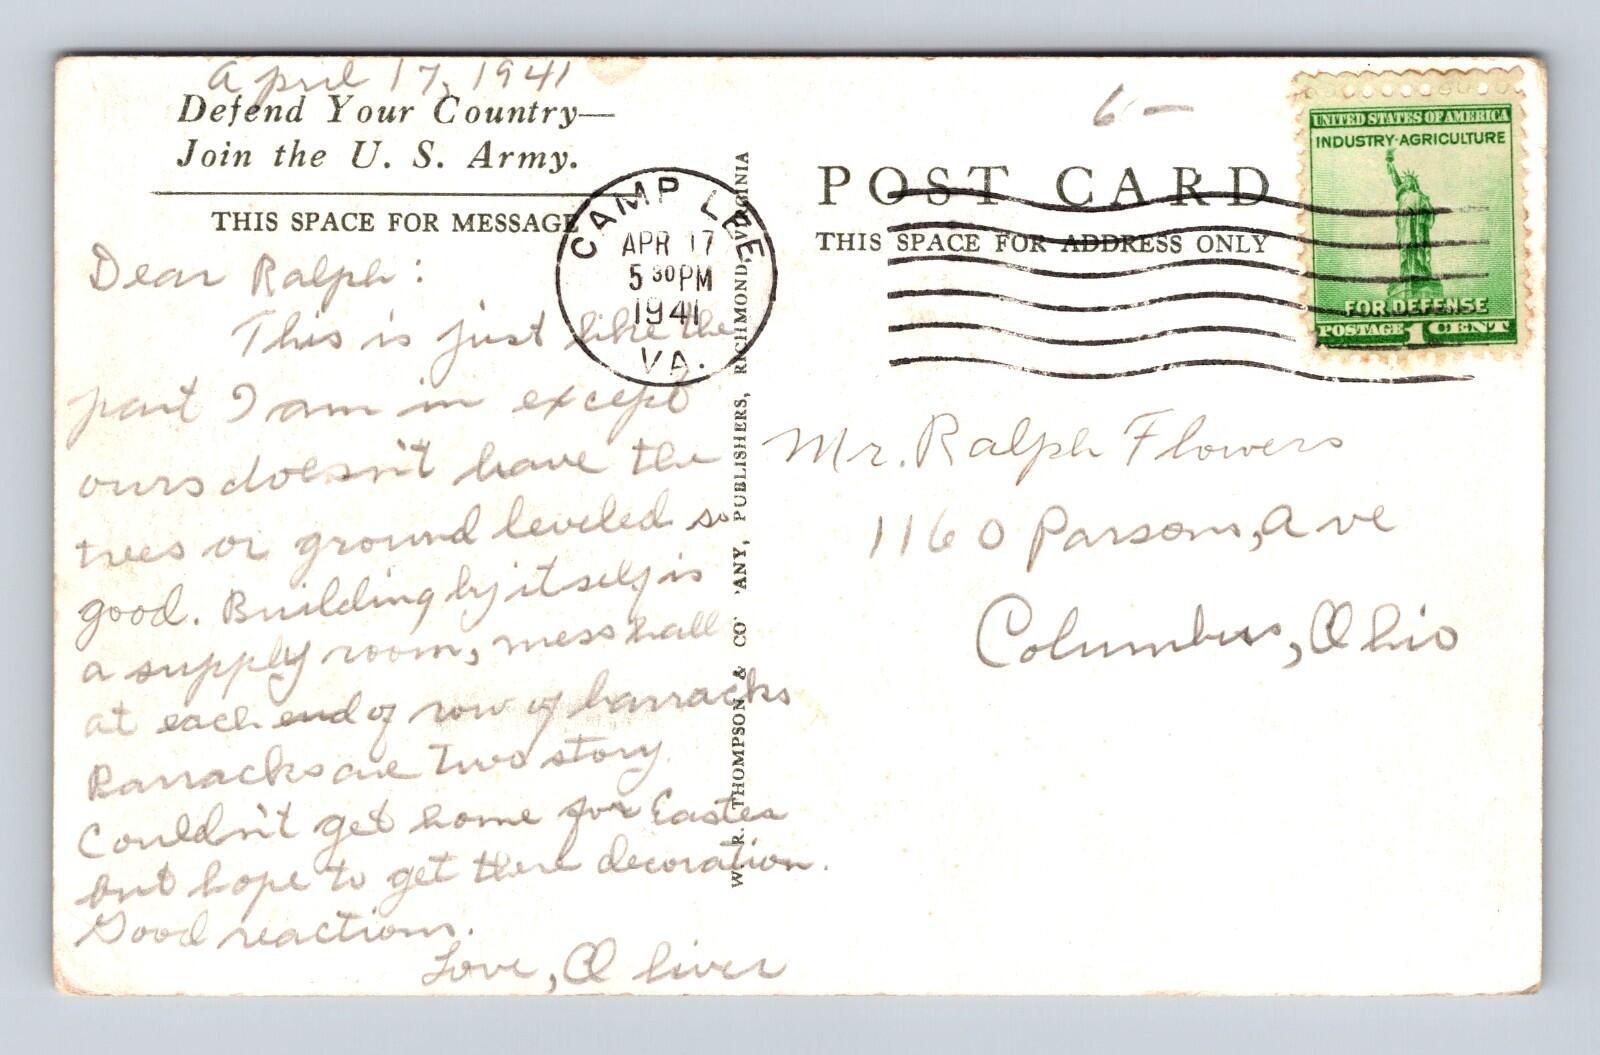 April 17, 1941
Defend Your Country—
Join the U. S. Army.
THIS SPACE FOR MESSAGE
Dear Ralph:
This is just like the
part I am in except
ours doesn't have the
trees or ground leveled so
good. Building by itself is
a supply room, mess hall
at each end of row of barracks
Barracks are Two story.
Couldn't get home for Easter
but hope to get there decoration.
Good reactions.
Love, Oliver
CAMP LEE
APR 17
5 30 PM
1941
VA.
W. R. THOMPSON & COMPANY, PUBLISHERS, RICHMOND, VIRGINIA
6 —
POST CARD
THIS SPACE FOR ADDRESS ONLY
UNITED STATES OF AMERICA
INDUSTRY·AGRICULTURE
FOR DEFENSE
POSTAGE 1 CENT
Mr. Ralph Flowers
1160 Parsons, Ave
Columbus, Ohio